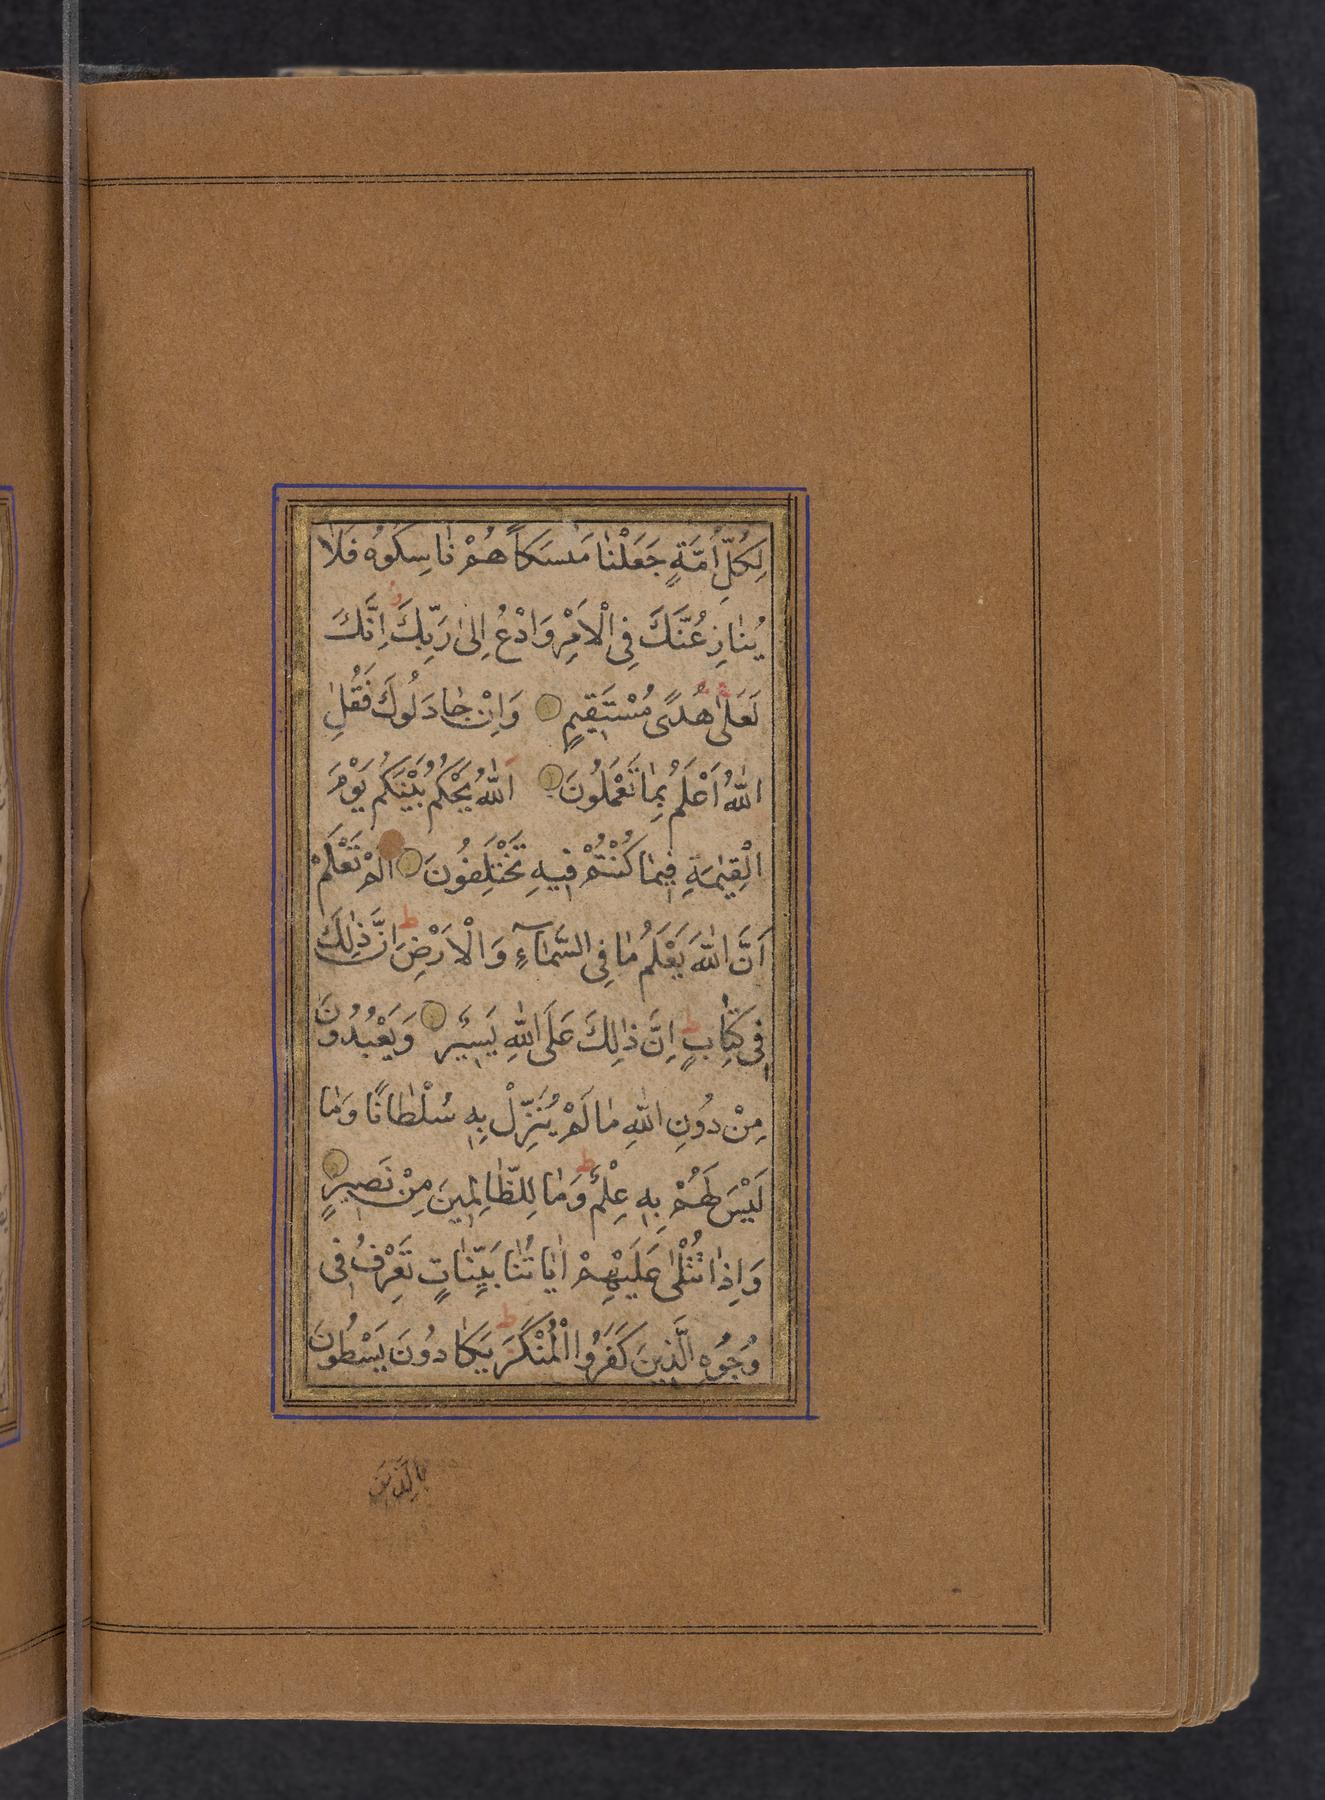 لِكُلِّ اُمَّةٍ جَعَلْنٰا مَنْسَكاً هُمْ نٰاسِكُوهُ فَلاٰ
يُنٰازِعُنَّكَ فِى الْاَمْرِ وَادْعُ اِلىٰ رَبِّكَ اِنَّكَ
لَعَلىٰ هُدًى مُسْتَقِيمٍ وَاِنْ جٰادَلُوكَ فَقُلِ
اللّٰهُ اَعْلَمُ بِمٰا تَعْمَلُونَ اَللّٰهُ يَحْكُمُ بَيْنَكُمْ يَوْمَ
الْقِيٰمَةِ فِيمٰا كُنْتُمْ فِيهِ تَخْتَلِفُونَ اَلَمْ تَعْلَمْ
اَنَّ اللّٰهَ يَعْلَمُ مٰا فِى السَّمٰآءِ وَالْاَرْضِ ط اِنَّ ذٰلِكَ
فِى كِتٰابٍ ط اِنَّ ذٰلِكَ عَلَى اللّٰهِ يَسِيرٌ وَيَعْبُدُونَ
مِنْ دُونِ اللّٰهِ مٰا لَمْ يُنَزِّلْ بِهِ سُلْطٰانًا وَمٰا
لَيْسَ لَهُمْ بِهِ عِلْمٌ ط وَمٰا لِلظّٰالِمِينَ مِنْ نَصِيرٍ
وَاِذٰا تُتْلىٰ عَلَيْهِمْ اٰيٰاتُنٰا بَيِّنٰاتٍ تَعْرِفُ فِى
وُجُوهِ الَّذِينَ كَفَرُوا الْمُنْكَرَ ط يَكٰادُونَ يَسْطُونَ
بِالَّذِينَ